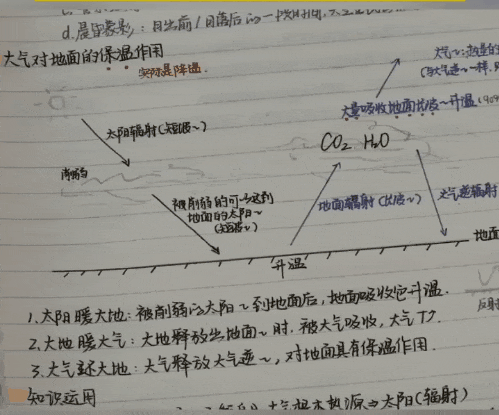 d.晨昏蒙影：日出前/日落后的一段时间，
大气对地面的保温作用
实际是降温.
大量吸收地面长波～升温
太阳辐射(短波～)
CO₂ H₂O
削弱
被削弱的可以达到
地面的太阳～
(短波～)
地面辐射(长波～)
大气逆辐射
地面
升温
1.太阳暖大地：被削弱的太阳～到地面后，地面吸收它升温.
2.大地暖大气：大地释放出地面～时，被大气吸收，大气T↗.
3.大气还大地：大气释放大气逆～，对地面具有保温作用.
知识运用
太阳(辐射)